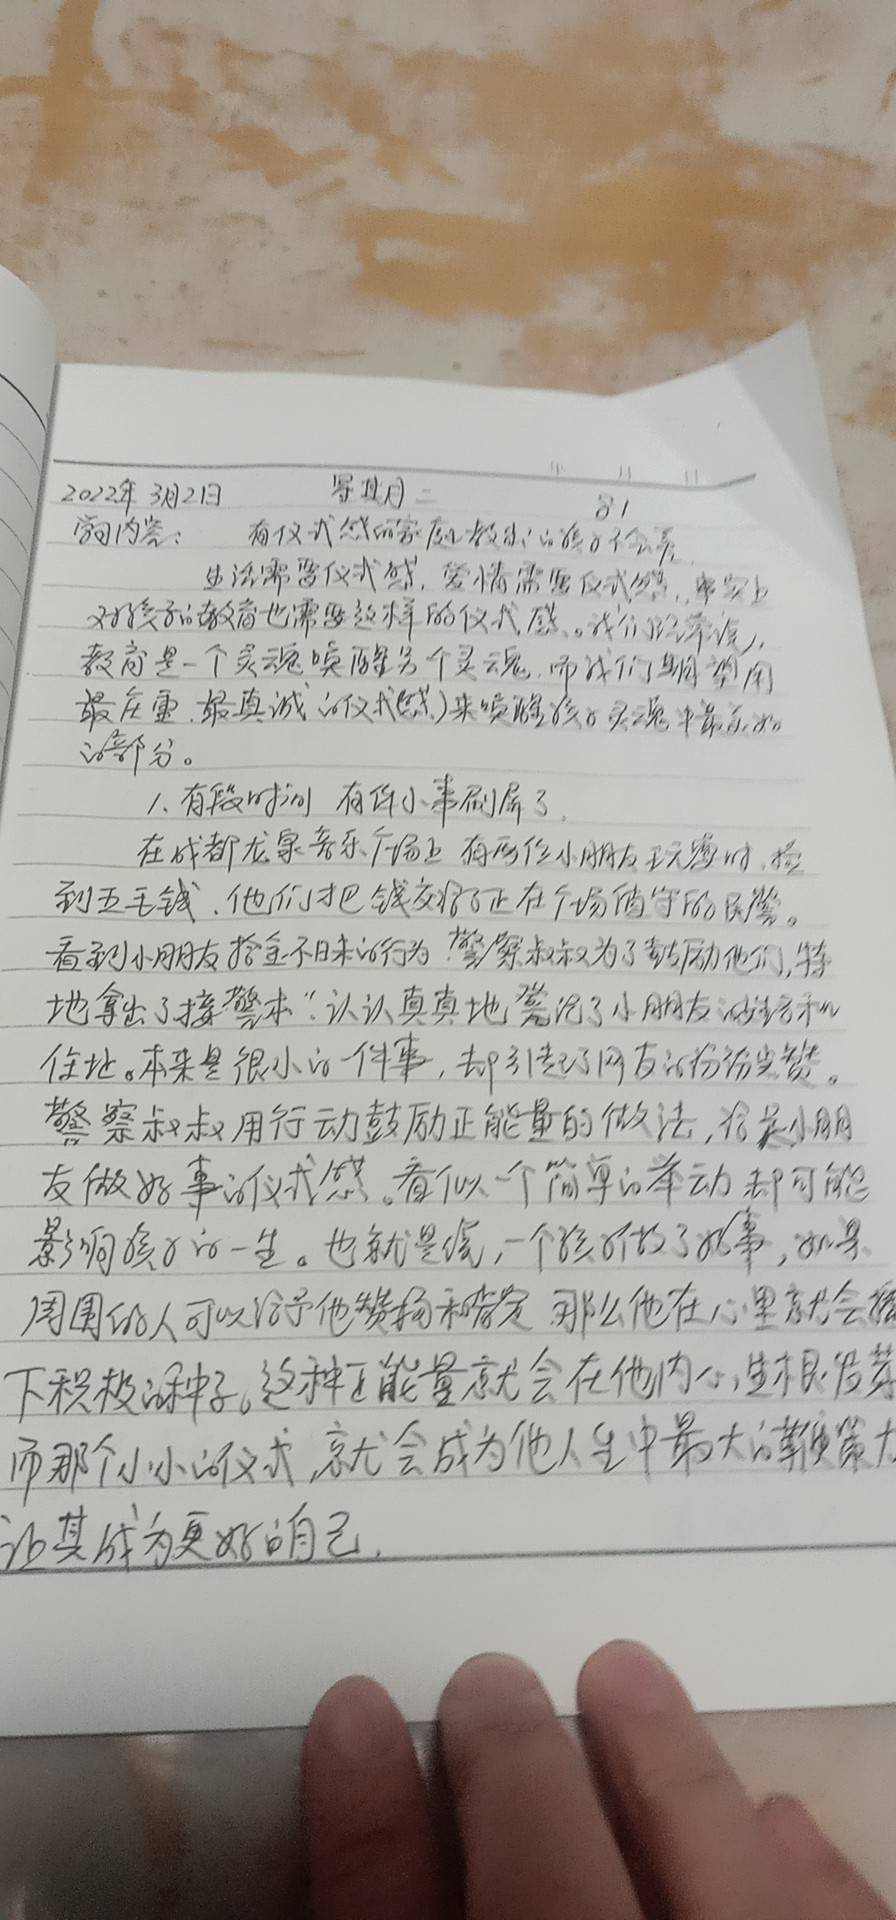 年 月 日
2022年 3月2日 星期二 81
学习内容： 有仪式感的家庭教出的孩子不会差
生活需要仪式感，爱情需要仪式感，事实上
对孩子的教育也需要这样的仪式感。我们经常说，
教育是一个灵魂唤醒另个灵魂，而我们期望用
最庄重、最真诚的仪式(感)来唤醒孩子灵魂中最美好
的部分。
1、有段时间 有件小事刷屏了，
在成都龙泉音乐广场上 有两位小朋友玩耍时，捡
到五毛钱，他们才把钱交给了正在广场值守的民警。
看到小朋友拾金不昧的行为 警察叔叔为了鼓励他们，特
地拿出了接警本“认认真真地 登记了小朋友的姓名和
住址。本来是很小的一件事，却引起了网友的纷纷点赞。
警察叔叔用行动鼓励正能量的做法，给足小朋
友做好事的仪式感。看似一个简单的举动 却可能
影响孩子的一生。也就是说，一个孩子做了好事，如果
周围的人可以给予他赞扬和肯定 那么他在心里就会播
下积极的种子。这种正能量就会在他内心，生根发芽
而那个小小的仪式，就会成为他人生中最大的鞭策力
让其成为更好的自己，